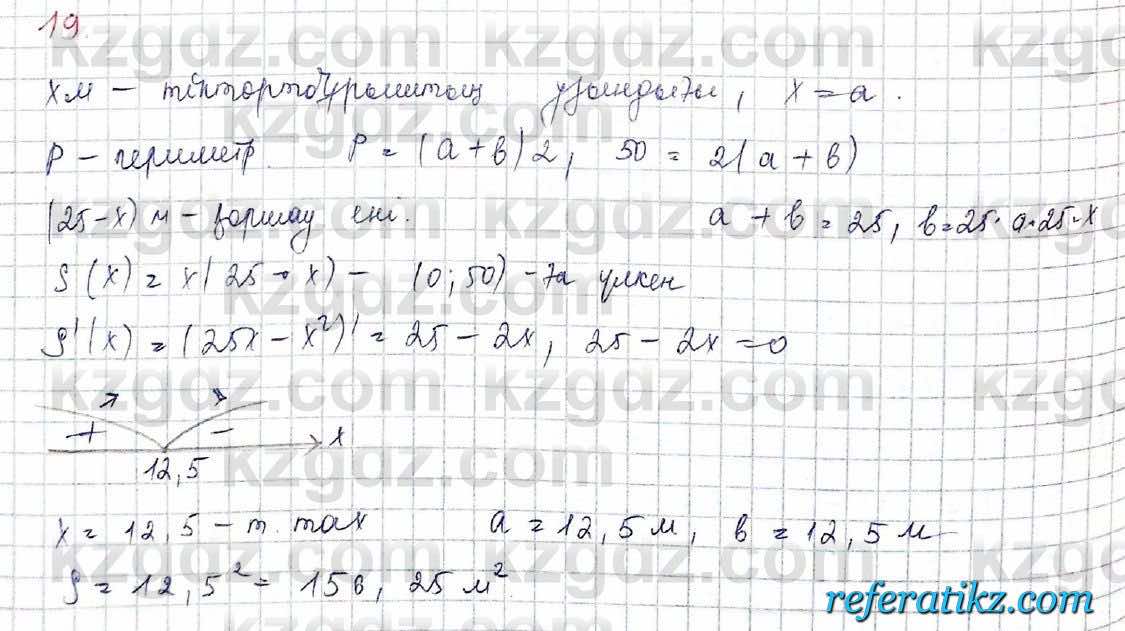 19.
xм – тіктөртбұрыштың ұзындығы, x = a.
P – периметр. P = (a + b) 2, 50 = 2(a + b)
(25 – x) м – қоршау ені. a + b = 25, b = 25 - a = 25 - x
S (x) = x(25 - x) – (0; 50) – үлкен
S'(x) = (25x – x²)' = 25 – 2x, 25 – 2x = 0
+ – x
12,5
x = 12,5 – т. max a = 12,5 м, b = 12,5 м
S = 12,5² = 156,25 м²
referatikz.com
kzgdz.com